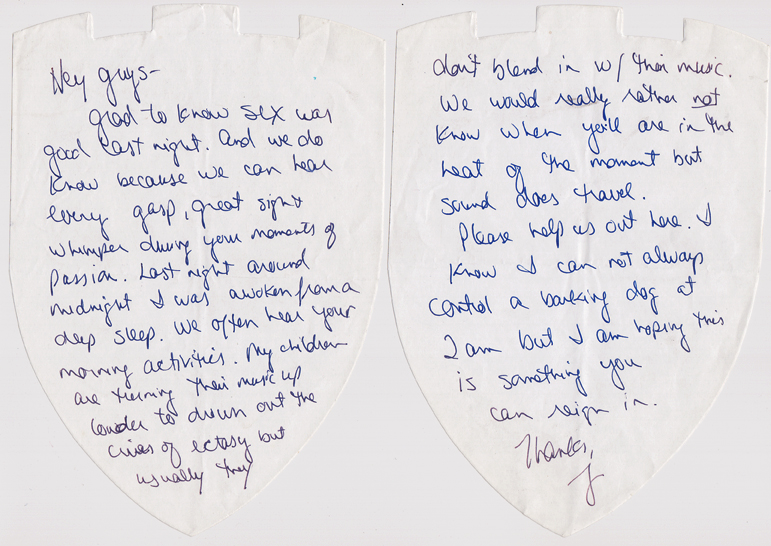 Hey guys-
glad to know sex was
good last night. And we do
know because we can hear
every gasp, great sigh &
whimper during your moments of
passion. Last night around
midnight I was awoken from a
deep sleep. We often hear your
morning activities. My children
are turning their music up
louder to drown out the
cries of ectasy but
usually they
don't blend in w/ their music.
We would really rather not
know when you'll are in the
heat of the moment but
sound does travel.
Please help us out here. I
know I can not always
control a barking dog at
2 am but I am hoping this
is something you
can reign in.
Thanks,
J